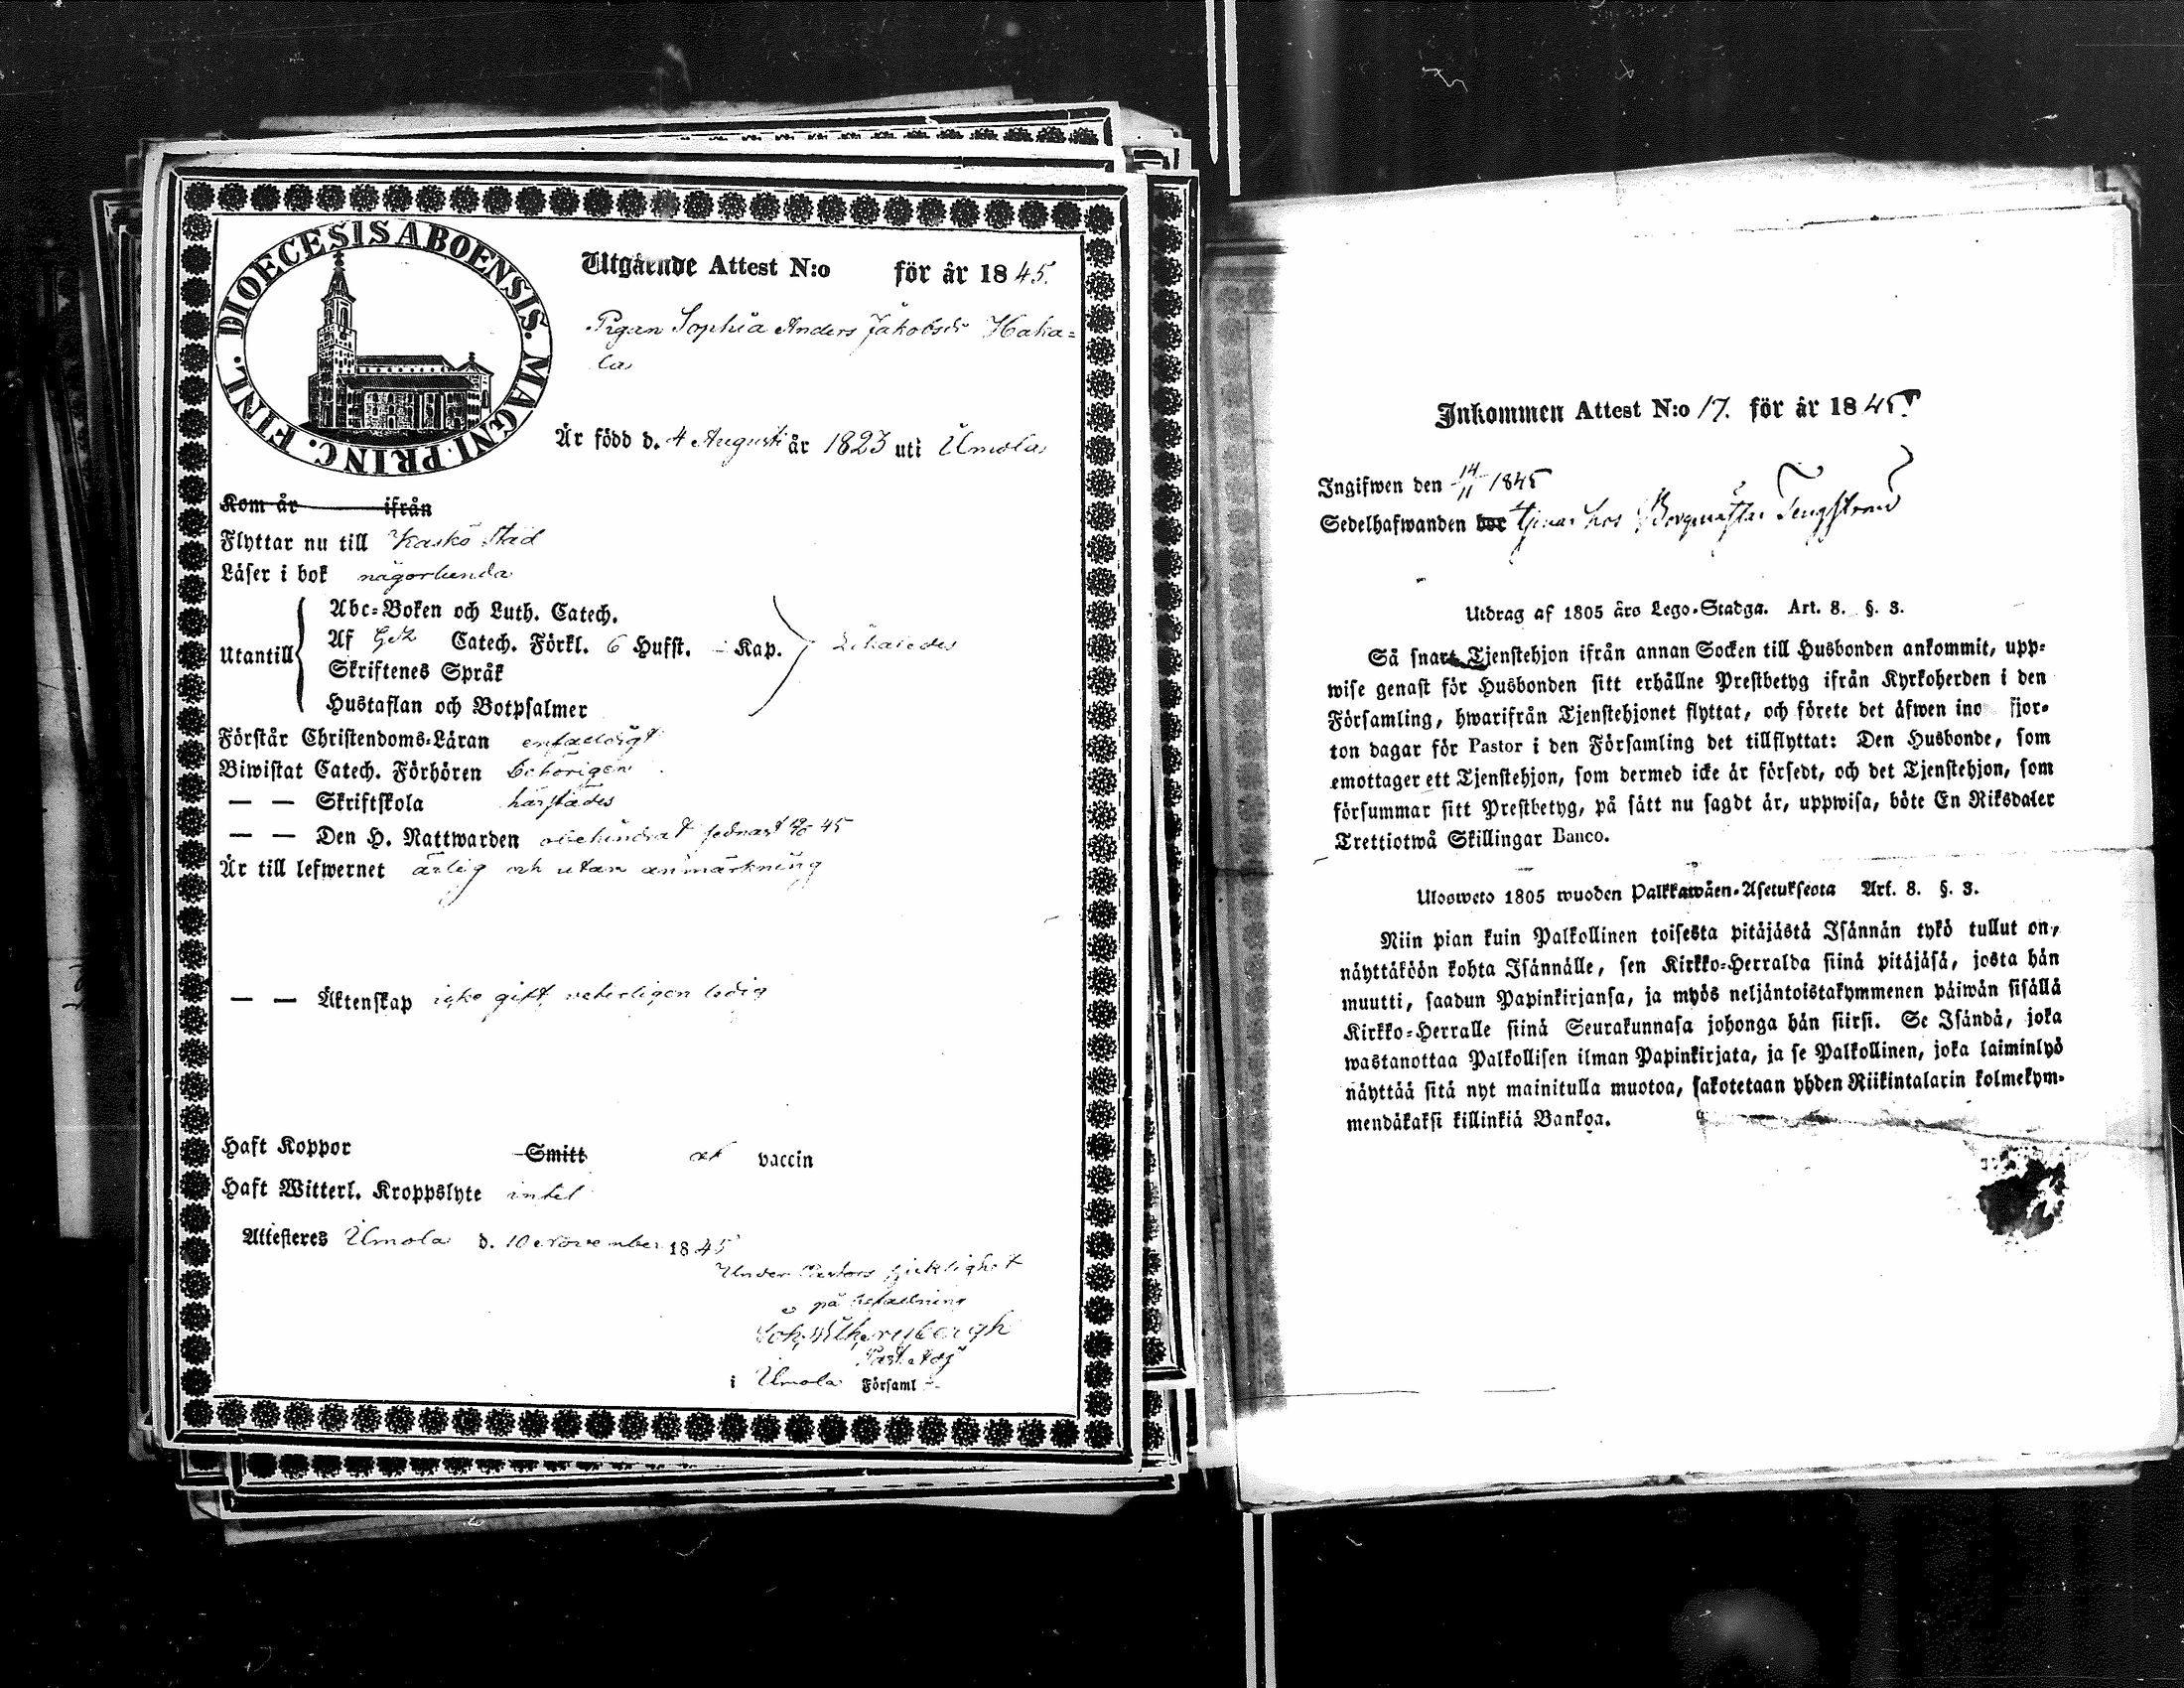 DIOECESIS ABOENSIS. MAGNI PRINC. FINL.
Utgående Attest N:o för år 1845.
Pigan Sophia Anders Jakobsdr Haka=
la
Är född d. 4 Augusti år 1823 uti Ilmola
Kom år ifrån
Flyttar nu till Kaskö Stad
Läser i bok någorlunda
Utantill
Abc-Boken och Luth. Catech.
Af Catech. Förkl. 6 Hufst. - Kap.
Skriftenes Språk
Hustaflan och Botpsalmer
Likaledes
Förstår Christendoms-Läran enfaldigt
Biwistat Catech. Förhören behörigen
— — Skriftskola härstädes
— — Den H. Nattwarden obehindrat sednast 45
Är till lefwernet ärlig och utan anmärkning
— — Äktenskap icke gift, veterligen ledig
Haft Koppor Smitt af vaccin
Haft Witterl. Kroppslyte intet
Attesteres Ilmola d. 10 November 1845
Under Pastors sjuklighet
o på befallning
Past. Adj
i Ilmola Församl
Inkommen Attest N:o 17. för år 1845.
Ingifwen den 14/11 1845
Sedelhafwanden bor tjenar hos Borgmästar Tengström
Utdrag af 1805 års Lego-Stadga. Art. 8. §. 3.
Så snart Tjenstehjon ifrån annan Socken till Husbonden ankommit, upp-
wise genast för Husbonden sitt erhållne Prestbetyg ifrån Kyrkoherden i den
Församling, hwarifrån Tjenstehjonet flyttat, och förete det äfwen ino fjor-
ton dagar för Pastor i den Församling det tillflyttat: Den Husbonde, som
emottager ett Tjenstehjon, som dermed icke är försedt, och det Tjenstehjon, som
försummar sitt Prestbetyg, på sätt nu sagdt är, uppwisa, böte En Riksdaler
Trettiotwå Skillingar Banco.
Ulosweto 1805 wuoden Palkkawäen-Asetuksesta Art. 8. §. 3.
Niin pian kuin Palkollinen toisesta pitäjästä Isännän tykö tullut on,
näyttäköön kohta Isännälle, sen Kirkko-Herralda siinä pitäjäsä, josta hän
muutti, saadun Papinkirjansa, ja myös neljäntoistakymmenen päiwän sisällä
Kirkko-Herralle siinä Seurakunnasa johonga hän siirsi. Se Isändä, joka
wastanottaa Palkollisen ilman Papinkirjata, ja se Palkollinen, joka laiminlyö
näyttää sitä nyt mainitulla muotoa, sakotetaan yhden Riikintalarin kolmekym-
mendäkaksi killinkiä Bankoa.